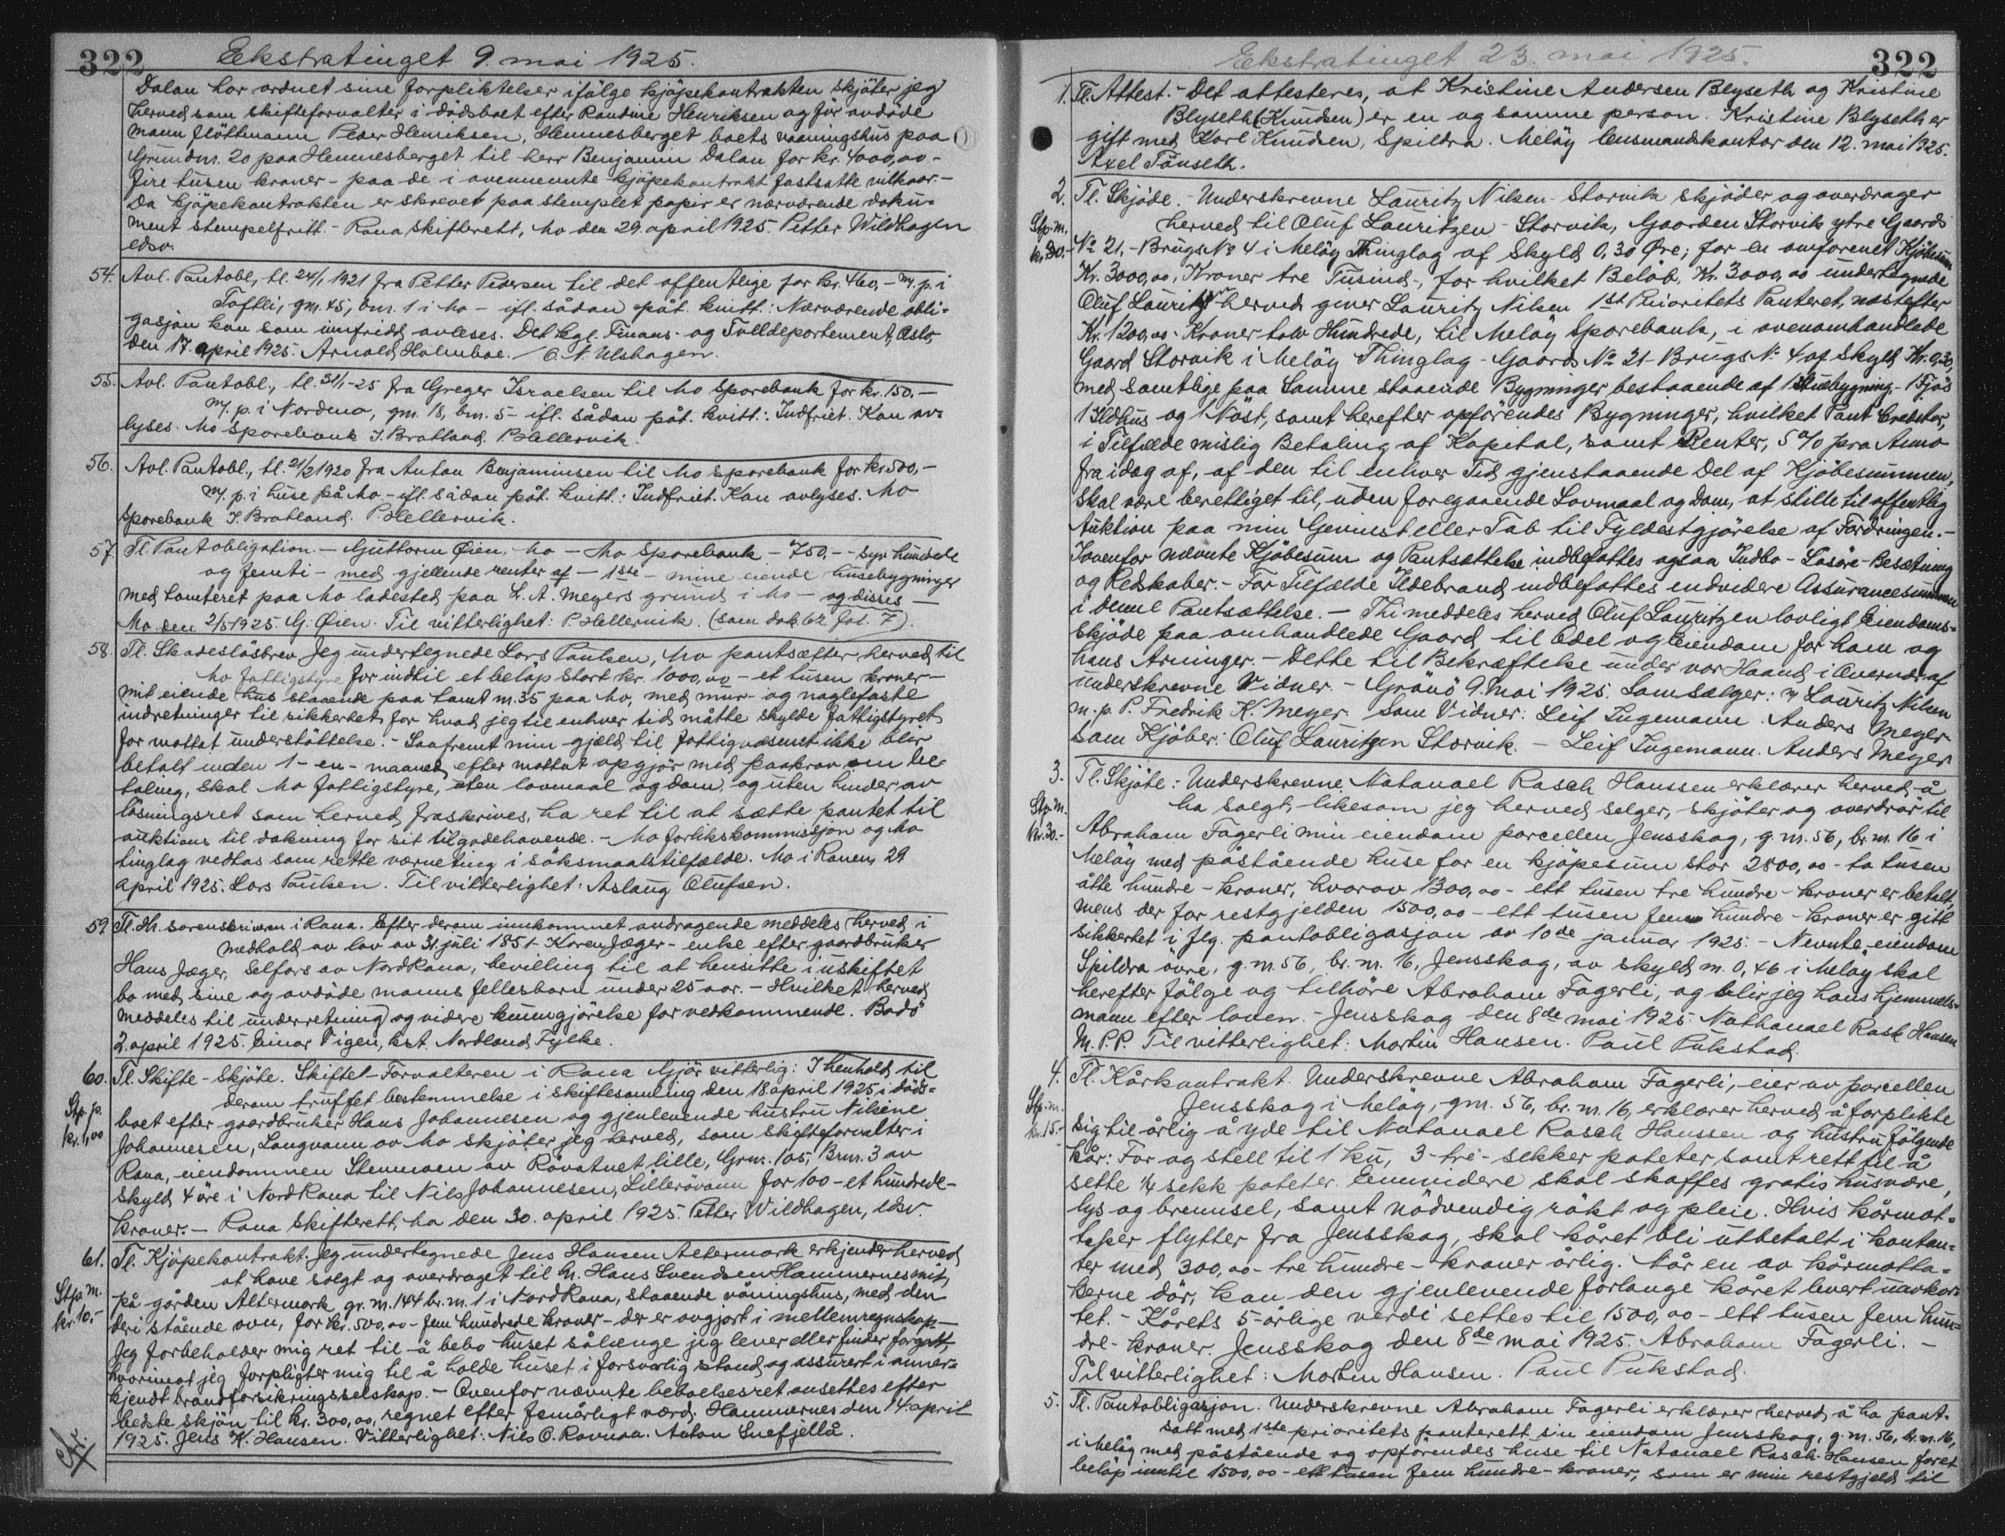 322 Ekstratinget 9. mai 1925.
Dalan har ordnet sine forpliktelser ifölge kjöpekontrakten skjöter jeg
herved som skifteforvalter i dödsboet efter Raudine Henriksen og för avdöde
mann flöttmann Peder Henriksen, Hemnesberget boets vaaningshus paa
Grundnr. 20 paa Hemnesberget til herr Benjamin Dalan for kr. 4000,00 -
fire tusen kroner - paa de i ovennevnte kjöpekontrakt fastsatte vilkaar. -
Da kjöpekontrakten er skrevet paa stemplet papir er nærværende doku-
ment stempelfritt. - Rana skifterett, Mo den 29 april 1925. Petter Wildhagen
edsv.
54. Avl. Pantobl., tl. 24/1 1921 fra Petter Pedersen til det offentlige for kr. 460,- m. p. i
Toftli, gnr. 45, bnr. 1 i Mo - ifl. sådan påt. kvitt.: Nærværende obli-
gasjon kan som innfridd avleses. Det kgl. Finans- og Tolldepartement, Oslo
den 17. april 1925. Arnold Holmboe. / O. N. Ulshagen.
55. Avl. Pantobl., tl. 31/1-25 fra Greger Israelsen til Mo Sparebank for kr. 150.-
m. p. i Nordmo, gnr. 18, bnr. 5 - ifl. sådan påt. kvitt.: Indfriet. Kan av-
lyses. Mo Sparebank J. Bratland. P. Hellervik.
56. Avl. Pantobl., tl. 21/2 1920 fra Anton Benjaminsen til Mo Sparebank for kr. 500,-
m. p. i huse på Mo - ifl. sådan påt. kvitt.: Indfriet. Kan avlyses. Mo
Sparebank J. Bratland. P. Hellervik.
57. Tl. Pantobligation. - Guttorm Øien, Mo - Mo Sparebank - 750,- - syv hundrede
og femti - med gjellende renter af - 1ste - mine eiende husebygninger
med tomteret paa Mo ladested paa L. A. Meyers grund i Mo - og disses -
Mo den 2/5 1925. G. Øien. Til vitterlighet: P. Hellervik. (som dok 62 fol. 7).
58. Tl. Skadeslösbrev. Jeg undertegnede Lars Paulsen, Mo pantsætter herved til
Mo Fattigstyre for indtil et belöp stort kr. 1000,00 - et tusen kroner -
mit eiende hus staaende paa tomt nr. 35 paa Mo, med mur- og naglefaste
indretninger til sikkerhet for hvad jeg til enhver tid måtte skylde fattigstyret
for mottat understöttelse. - Saafremt min gjæld til fattigvæsenet ikke blir
betalt inden 1 - en - maaned efter mottat opgjör med paakrav om be-
taling, skal Mo Fattigstyre, uten lovmaal og dom, og uten hinder av
lösningsret som herved fraskrives, ha ret til at sætte pantet til
auktions til dækning for sit tilgodehavende. - Mo forlikskommissjon og Mo
tinglag vedtas som rette værneting i söksmaalstilfælde. Mo i Ranen, 29
april 1925. Lars Paulsen. Til vitterlighet: Aslaug Olufsen.
59. Tl. Hr. sorenskriveren i Rana. Efter derom innkommet andragende meddeles herved i
medhold av lov av 31. juli 1851 Karen Jæger - enke efter gaardbruker
Hans Jæger, Selfors av Nordrana, bevilling til at hensitte i uskiftet
bo med sine og avdöde manns fellesbarn under 25 aar. - Hvilket herved
meddeles til underretning og videre kunngjörelse for vedkommende. Bodö
2. april 1925. Einar Vigen, kst. Nordland Fylke.
60. Tl. Skifte-Skjöte. Skiftet-Forvalteren i Rana Gjör vitterlig: I henhold til
Stp. p. kr. 1,00 derom truffet bestemmelse i skiftesamling den 18 april 1925 i döds-
boet efter gaardbruker Hans Johannesen og gjenlevende hustru Nilsine
Johannesen, Langvann av Mo skjöter jeg herved, som skifteforvalter i
Rana, eiendommen Stenmoen av Rövatnet lille, Grnr. 105, Brnr. 3 av
skyld 4 öre i Nordrana til Nils Johannesen, Lillerövann for 100 - et hundrede -
kroner. - Rana Skifterett, Mo den 30. april 1925. Petter Wildhagen, edsv.
61. Tl. Kjöpekontrakt. Jeg undertegnede Jens Hansen Altermark erkjender herved
Stp. m. kr. 10.- at have solgt og overdraget til hr. Hans Svendsen Hammernes mit,
på gården Altermark gr. nr. 144 br. nr. 1 i Nordrana, staaende våningshus, med den
deri stående ovn, for kr. 500,00 - fem hundrede kroner - der er avgjort i mellemregnskap. -
Jeg forbeholder mig ret til å bebo huset sålænge jeg lever eller finder forgott,
hvorimot jeg forpligter mig til å holde huset i forsvarlig stand og assurert i aner-
kjendt brandforsikringsselskap. - Ovenfor nævnte beboelsesret ansettes efter
bedste skjön til kr. 300,00, regnet efter femårligt værd. Hammernes den 14 april
1925. Jens K. Hansen. Vitterlighet: Nils O. Ravnaa. Anton Snefjellå.
Ekstratinget 23. mai 1925. 322
1. Tl. Attest. - Det attesteres, at Kristine Andersen Blyseth og Kristine
Blyseth (Knudsen) er en og samme person. Kristine Blyseth er
gift med Karl Knudsen, Spildra. Melöy lensmandskontor den 12. mai 1925.
Axel Tönseth.
2. Tl. Skjöde. - Underskrevne Lauritz Nilsen - Storvik skjöder og overdrager
Stp. m. kr. 30.- herved til Oluf Lauritzen - Storvik, Gaarden Storvik ytre Gaards
No 21, - Brugs No 4 i Melöy Thinglag af Skyld 0,30 Øre; for en omforenet Kjöbesum
Kr. 3000,00, Kroner tre Tusind-, for hvilket Belöb, Kr. 3000,00 undertegnede
Oluf Lauritzen herved giver Lauritz Nilsen 1st Prioritets Panteret, næstefter
Kr. 1200,00 - Kroner tolv Hundrede, til Melöy Sparebank, i ovenomhandlede
Gaard Storvik i Melöy Thinglag - Gaards No 21 Brugs No 4 af Skyld Kr. 0,30,
med samtlige paa Samme staaende Bygninger bestaaende af 1 Stuebygning - 1 Fjös
1 Ildhus og 1 Nöst, samt herefter opförendes Bygninger, hvilket Pant Creditor,
i Tilfælde mislig Betaling af Kapital, samt Renter, 5 o/o pra Anno
fra idag af, af den til enhver Tid gjenstaaende Del af Kjöbesummen,
skal være berettiget til, uden foregaaende Lovmaal og Dom, at stille til offentlig
Auktion paa min Gevinst eller Tab til Fyldestgjörelse af Fordringen. -
I ovenfor nævnte Kjöbesum og Pantsættelse indbefattes ogsaa Indbo - Lösöre - Besætning
og Redskaber. - For Tilfælde Ildebrand indbefattes endvidere Assurancesummen
i denne Pantsættelse. - Thi meddeles herved Oluf Lauritzen lovligt Eiendoms-
skjöde paa omhandlede Gaard til Odel og Eiendom for ham og
hans Arvinger. - Dette til Bekræftelse under vor Haand i Overvær af
underskrevne Vidner. - Grönö 9. Mai 1925. Som Sælger: Lauritz Nilsen
m. p. P. Fredrik K. Meyer. Som Vidner: Leif Ingemann. Anders Meyer
Som Kjöber: Oluf Lauritzen Storvik. - Leif Ingemann. Anders Meyer
3. Tl. Skjöte: Underskrevne Natanael Rasch Hanssen erklærer herved å
Stp. m. kr. 30.- ha solgt, likesom jeg herved selger, skjöter og overdrar til
Abraham Fagerli min eiendom parcellen Jensskog, g. nr. 56, br. nr. 16 i
Melöy med påstående huse for en kjöpesum stor 2800,00 - to tusen
åtte hundre - kroner, hvorav 1300,00 - ett tusen tre hundre - kroner er betalt,
mens der for restgjelden 1500,00 - ett tusen fem hundre - kroner er gitt
sikkerhet i flg. pantobligasjon av 10de januar 1925. - Nevnte eiendom
Spildra övre, g. nr. 56, br. nr. 16, Jensskog, av skyld m. 0,46 i Melöy skal
herefter fölge og tilhöre Abraham Fagerli, og blir jeg hans hjemmels-
mann efter loven. - Jensskog den 8de mai 1925. Nathanael Rask Hansen
M. P. P. Til vitterlighet: Martin Hansen. Paul Pukstad.
4. Tl. Kårkontrakt. Underskrevne Abraham Fagerli, eier av parcellen
Stp. m. kr. 15.- Jensskog i Melöy, gnr. 56, br. nr. 16, erklærer herved å forplikte
sig til årlig å yde til Natanael Rasch Hanssen og hustru fölgende
kår: For og stell til 1 ku, 3 - tre - sekker poteter, samt rett til å
sette 1/4 sekk poteter. Ennvidere skal skaffes gratis husvære,
lys og brensel, samt nödvendig rökt og pleie. Hvis kårmot-
taker flytter fra Jensskog, skal kåret bli utbetalt i kontan-
ter med 300,00 - tre hundre - kroner årlig. Når en av kårmotta-
kerne dör, kan den gjenlevende forlange kåret levert uavkor-
tet. - Kårets 5-årlige verdi settes til 1500,00 - ett tusen fem hun-
dre - kroner. Jensskog den 8de mai 1925. Abraham Fagerli. -
Til vitterlighet: Martin Hansen. Paul Pukstad.
5. Tl. Pantobligasjon. Underskrevne Abraham Fagerli erklærer herved å ha pant-
satt med 1ste prioritets panterett sin eiendom Jensskog, g. nr. 56, br. nr. 16,
i Melöy med påstående og opförendes huse til Natanael Rasch Hansen for et
belöp inntil 1500,00 - ett tusen fem hundre - kroner, som er min restgjeld til